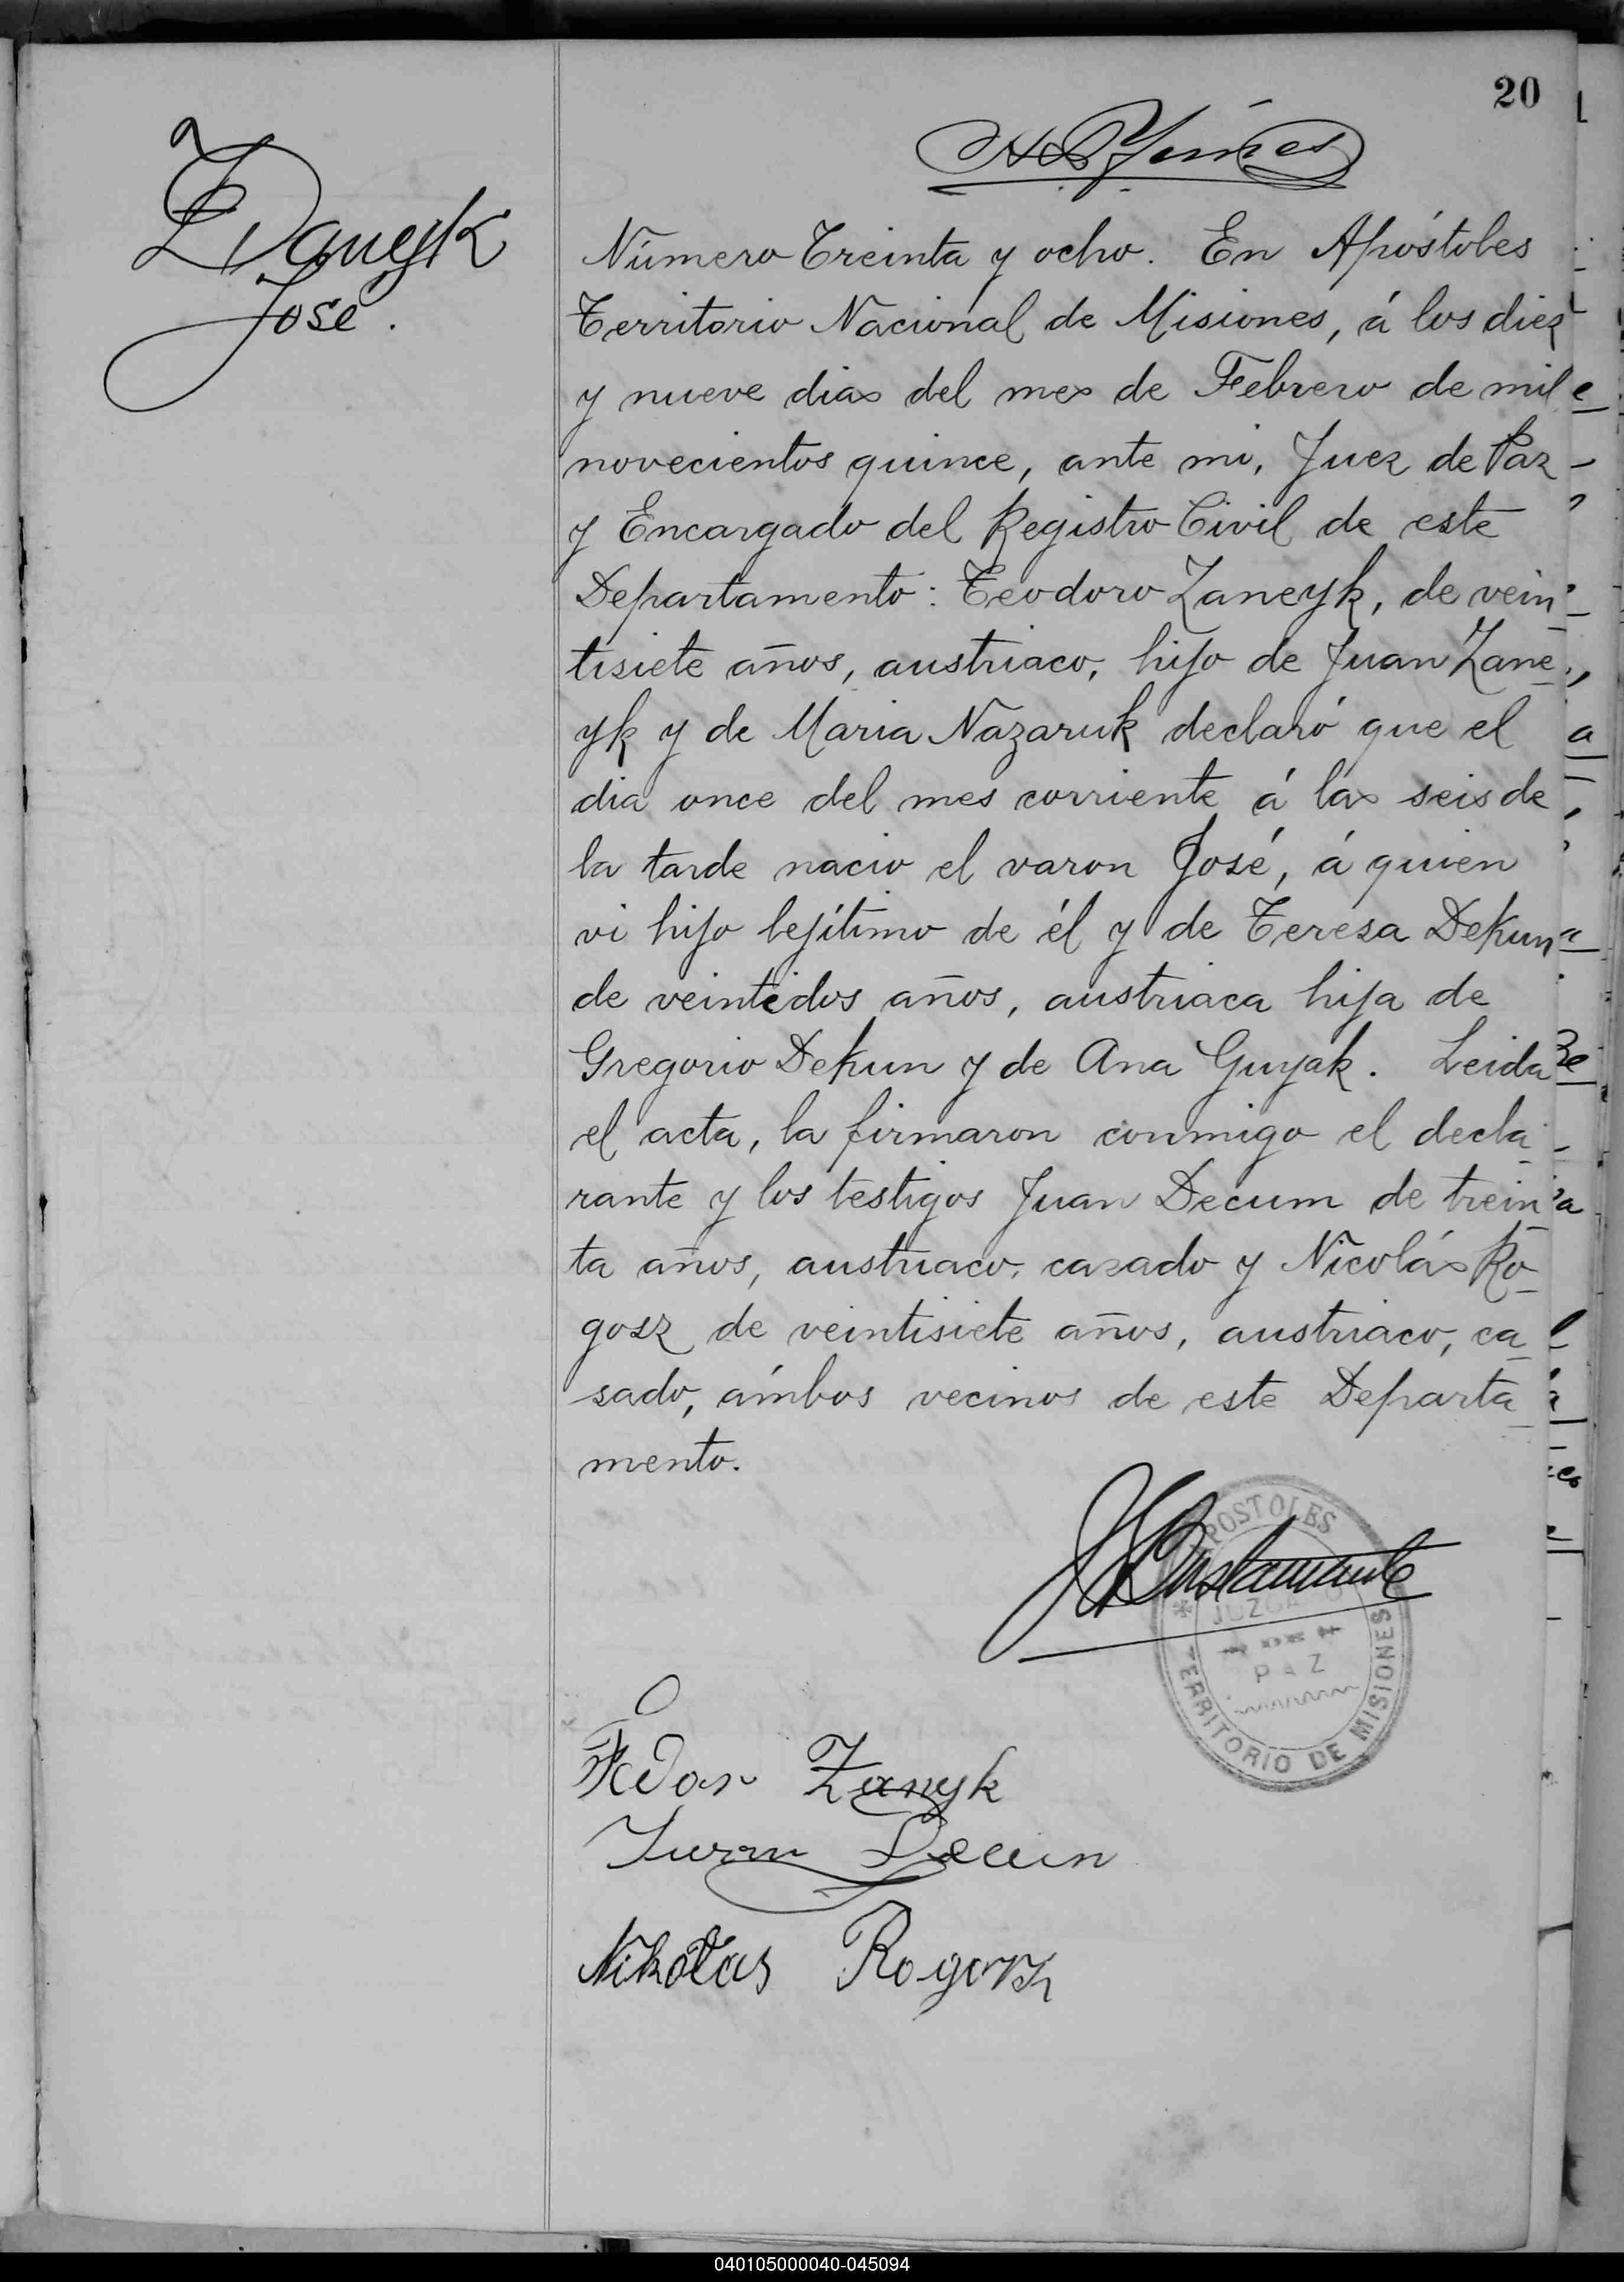 20
Zaneyk
José.
Número Treinta y ocho. En Apóstoles
Territorio Nacional de Misiones, á los diez
y nueve dias del mes de Febrero de mil
novecientos quince, ante mi, Juez de Paz
y Encargado del Registro Civil de este
Departamento: Teodoro Zaneyk, de vein-
tisiete años, austriaco, hijo de Juan Zane-
yk y de Maria Nazaruk declaró que el
dia once del mes corriente á las seis de
la tarde nacio el varon José, á quien
vi hijo lejítimo de él y de Teresa Dekun
de veintidos años, austriaca hija de
Gregorio Dekun y de Ana Guyak. Leida
el acta, la firmaron conmigo el decla-
rante y los testigos Juan Decum de trein-
ta años, austriaco, casado y Nicolás Ro-
gosz de veintisiete años, austriaco, ca-
sado, ámbos vecinos de este Departa-
mento.
Bustamante
APOSTOLES
JUZGADO
DE
PAZ
TERRITORIO DE MISIONES
Fedor Zanyk
Juan Decun
Nikolas Rogosz
040105000040-045094